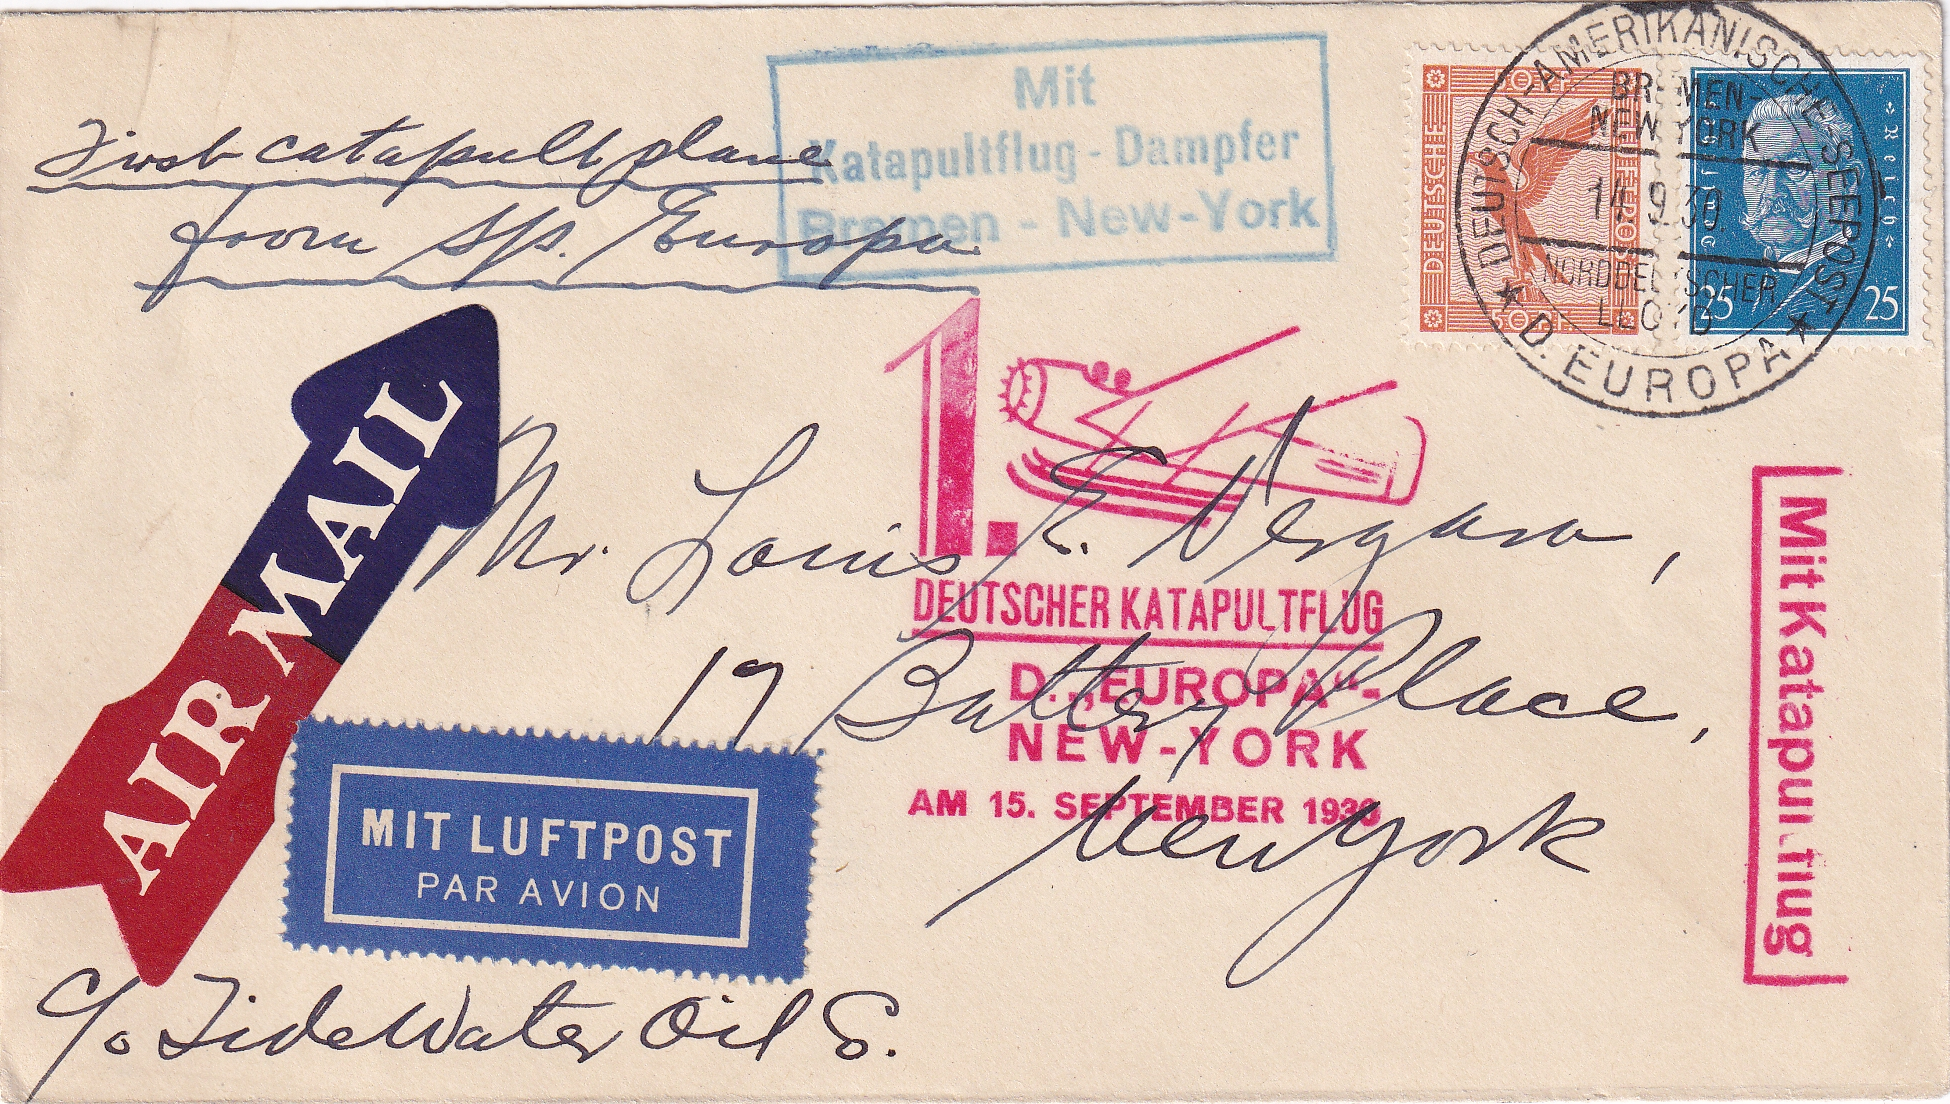 First catapult plane
from S/S. Europa
Mit
Katapultflug - Dampfer
Bremen - New-York
DEUTSCHE
50 PF
50 PF
Reich
25 25
DEUTSCH-AMERIKANISCHE-SEEPOST
BREMEN-
NEW YORK
14.9.30.
NORDDEUTSCHER
LLOYD
* D. EUROPA *
AIR MAIL
1.
DEUTSCHER KATAPULTFLUG
D. „EUROPA"-
NEW-YORK
AM 15. SEPTEMBER 1930
Mit Katapultflug
Mr. Louis E. Vergara,
17 Battery Place,
New York
MIT LUFTPOST
PAR AVION
c/o Tide Water Oil Co.